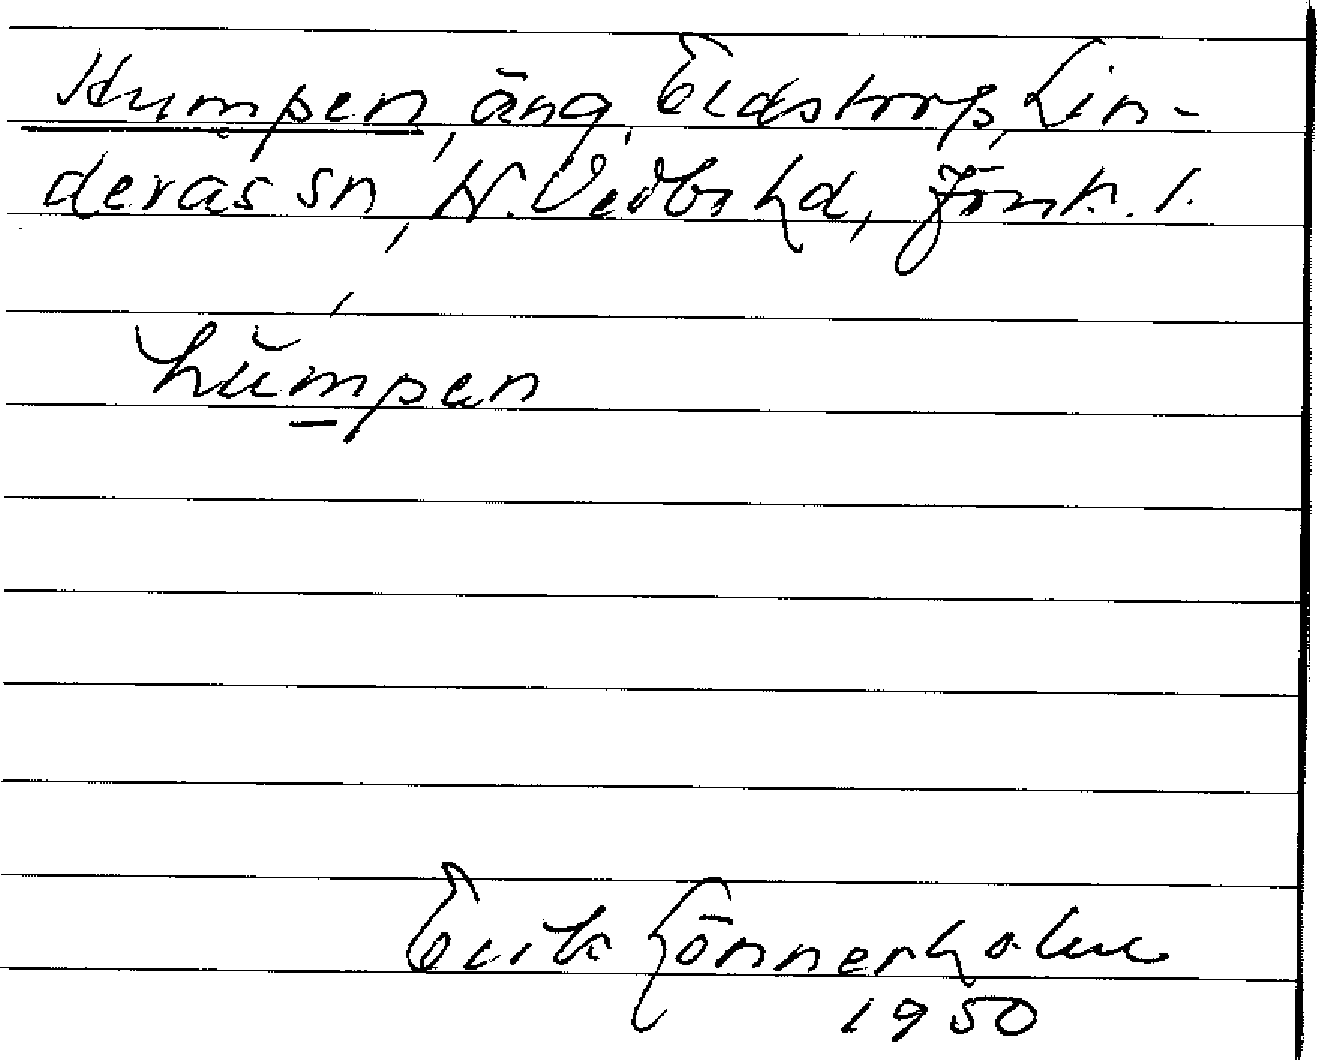 Humpen, äng, Eldstorp, Lin-
derås sn, N. Vedbo hd, Jönk. l.
hŭmpen
Erik Lönnerholm
1950